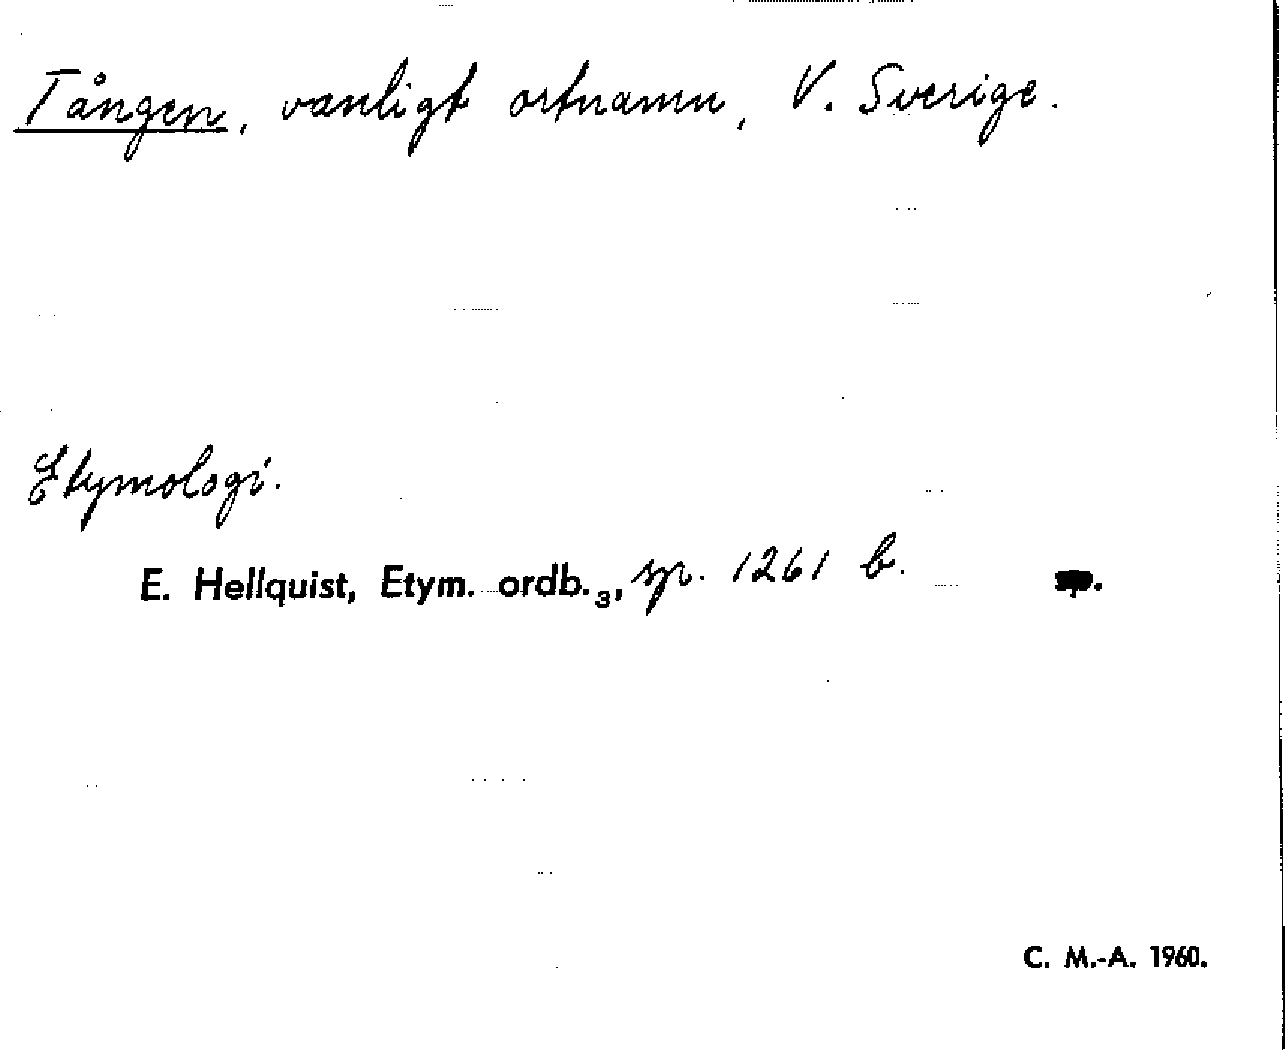 Tången, vanligt ortnamn, V. Sverige.
Etymologi.
E. Hellquist, Etym. ordb.₃, sp. 1261 b.
C. M.-A. 1960.